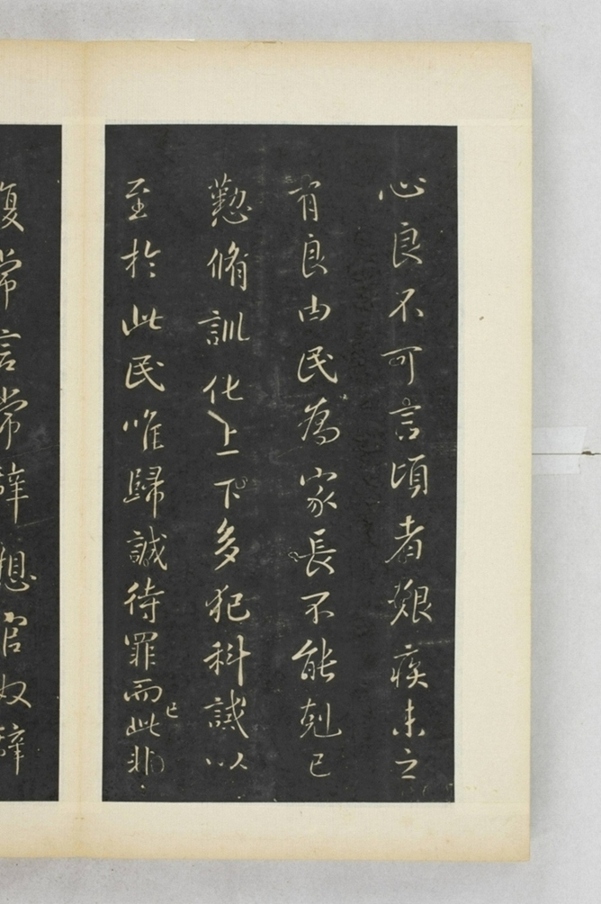 心良不可言頃者艱疾未之
有良由民為家長不能剋己
懃脩訓化上下多犯科誡以
至於此民唯歸誠待罪而已此非
復常言常辭想官奴辭